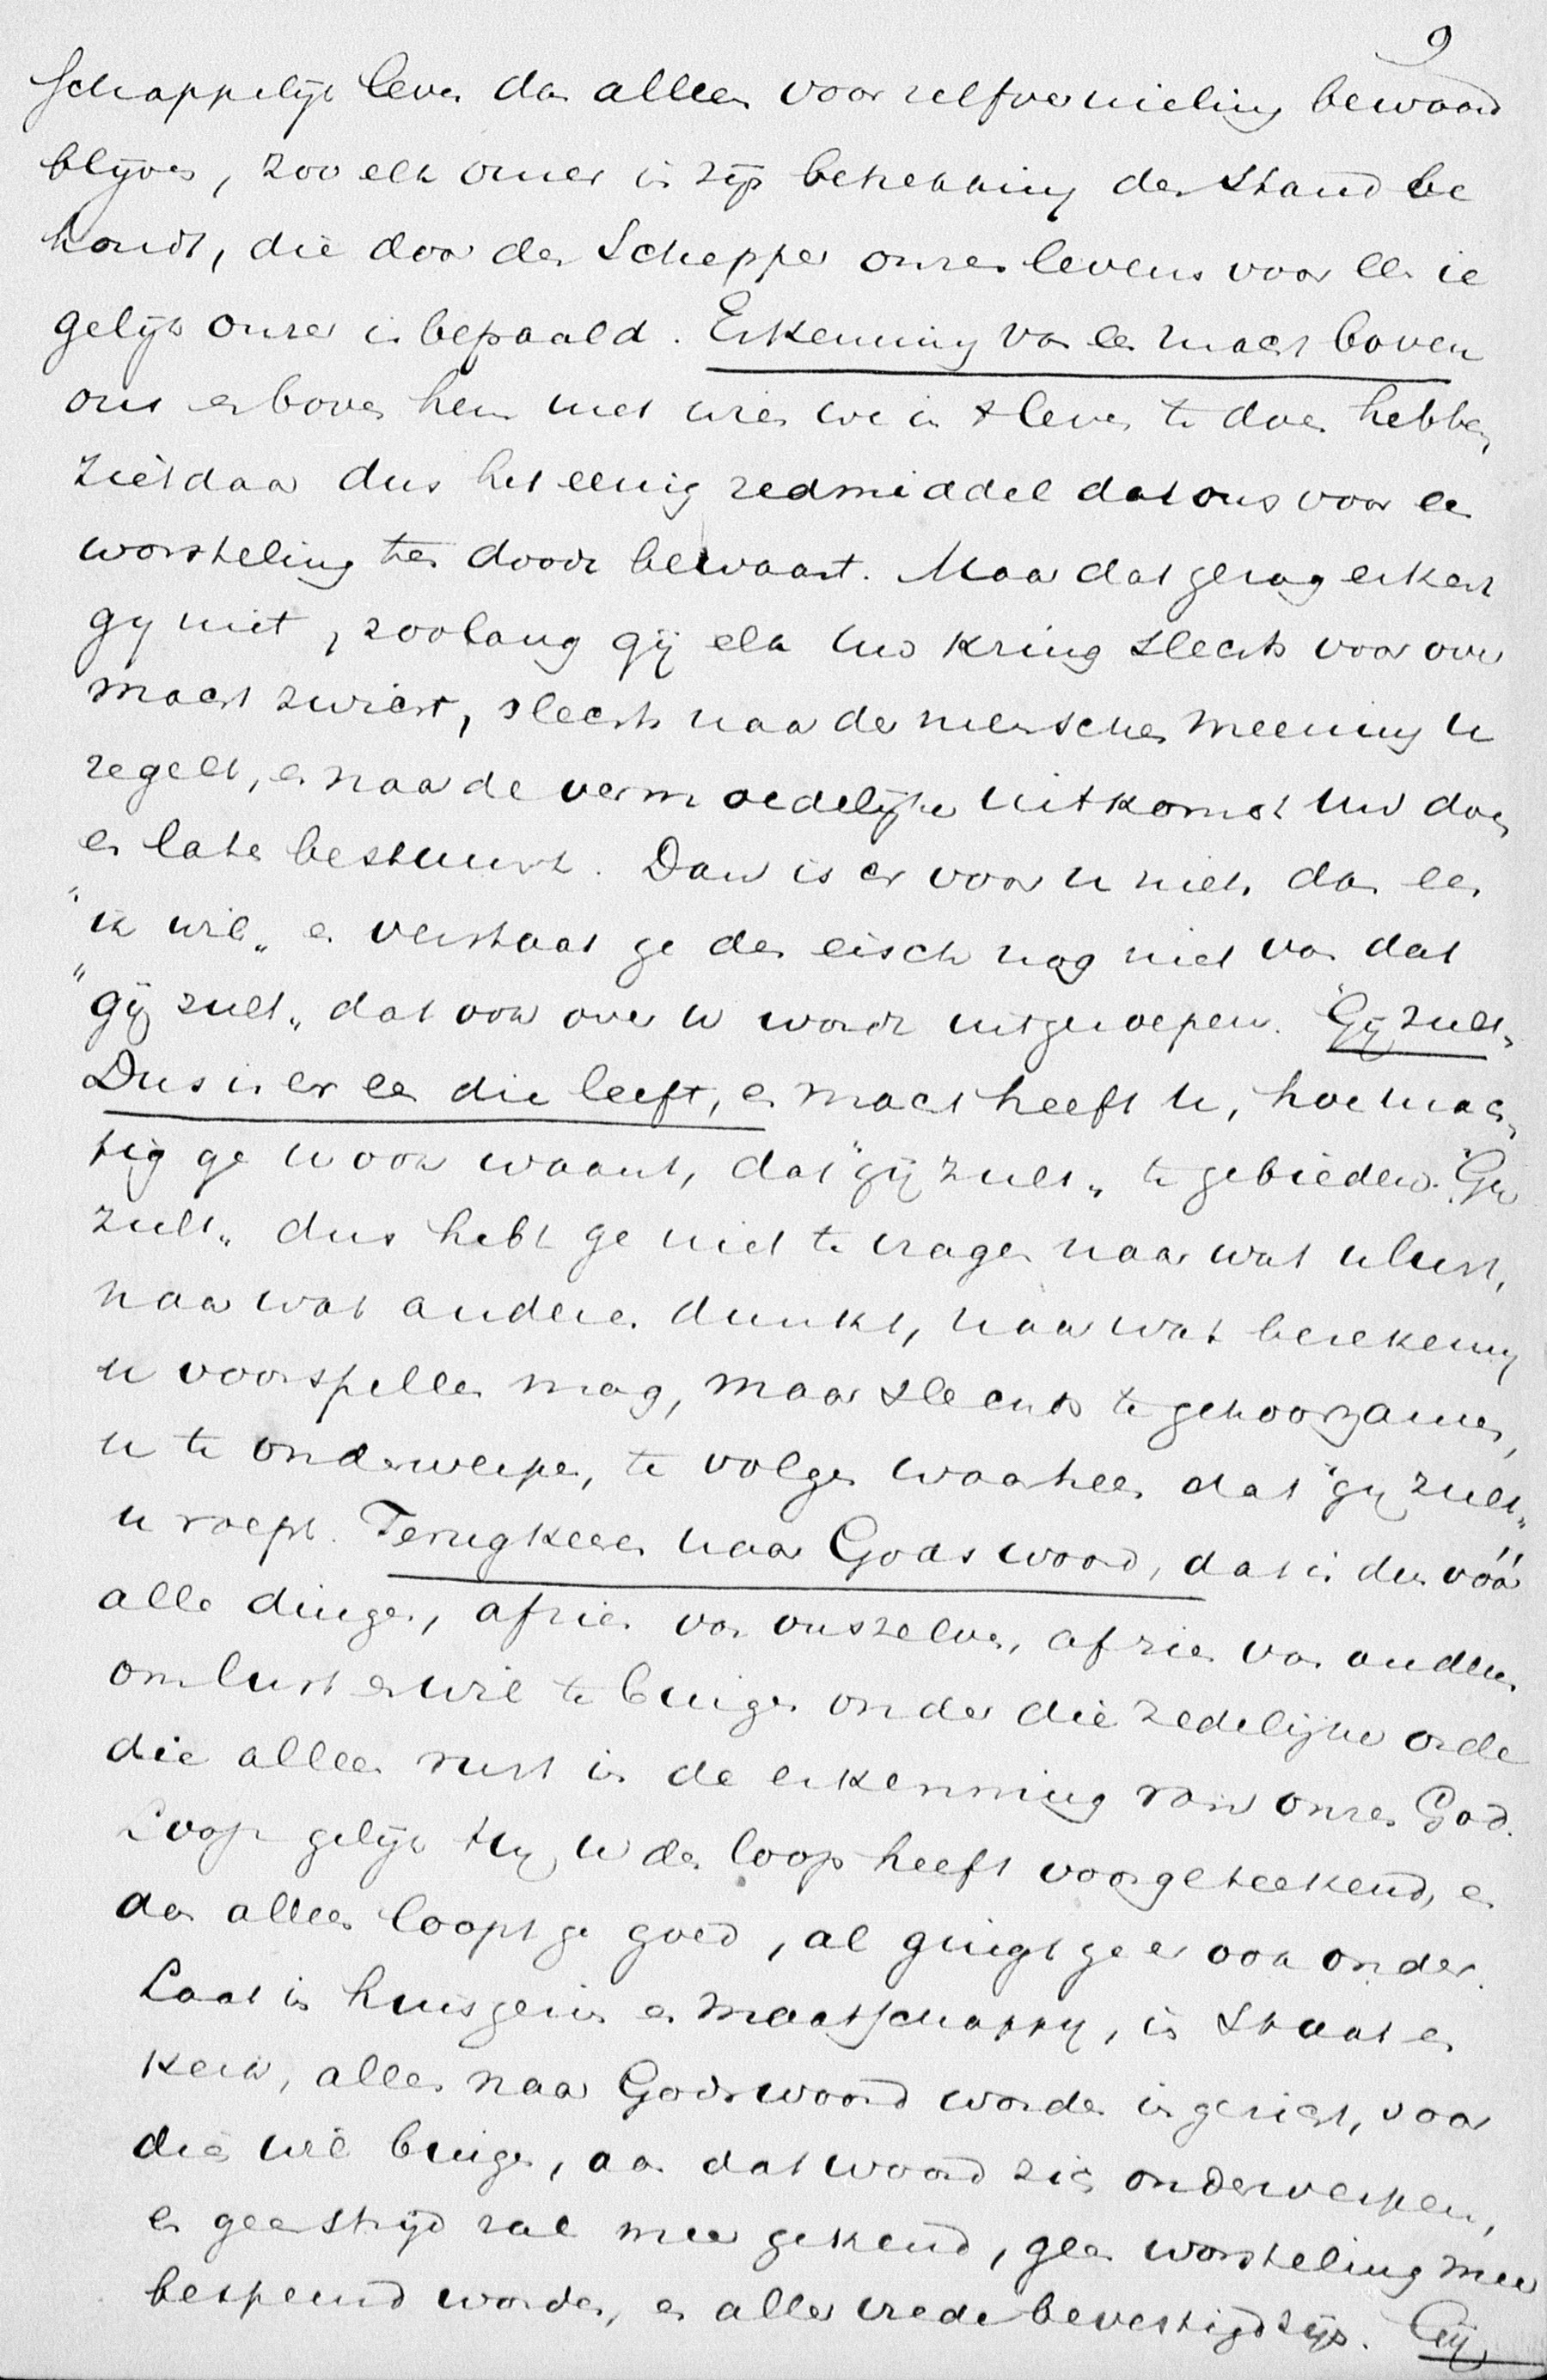 9
schappelijk leven dan alleen voor zelfvernieling bewaard
blijven, zoo elk onzer in zijn betrekking den stand be
houdt, die door den Schepper onzes levens voor een ie
gelijk onzer is bepaald. Erkenning van een macht boven
ons en boven hen met wien we in 't leven te doen hebben,
ziétdaar dus het eenig redmiddel dat ons voor een
worsteling ten doode bewaart. Maar dat gezag erkent
gy niet, zoolang gij elk uw kring slechts voor over
macht zwicht, slechts naar der menschen meening u
regelt, en naar de vermoedelijke uitkomst uw doen
en laten bestuurt. Dan is er voor u niets dan een
"ik wil" en verstaat ge den eisch nog niet van dat
"gij zult" dat ook over u wordt uitgeroepen. "Gij zult"
Dus is er een die leeft, en macht heeft u, hoe mach
tig ge u ook waant, dat "gij zult" te gebieden. "Gij
zult" dus hebt ge niet te vragen naar wat u lust,
naar wat anderen dunkt, naar wat berekening
u voorspellen mag, maar slechts te gehoorzamen,
u te onderwerpen, te volgen waarheen dat "gij zult"
u roept. Terugkeeren naar Gods woord, dat is dus vóór
alle dingen, afzien van onszelven, afzien van anderen
om lust en wil te buigen onder die zedelijke orde
die alleen rust in de erkenning van onzen God.
Loop gelijk Hy u den loop heeft voorgeteekend, en
dan alleen loopt ge goed, al gingt ge er ook onder.
Laat in huisgezin en maatschappy, in Staat en
Kerk, alles naar Gods woord worden ingericht, voor
die wil buigen, aan dat woord zich onderwerpen,
en geen strijd zal meer gekend, geen worsteling meer
bespeurd worden, en aller vrede bevestigd zijn. Gij